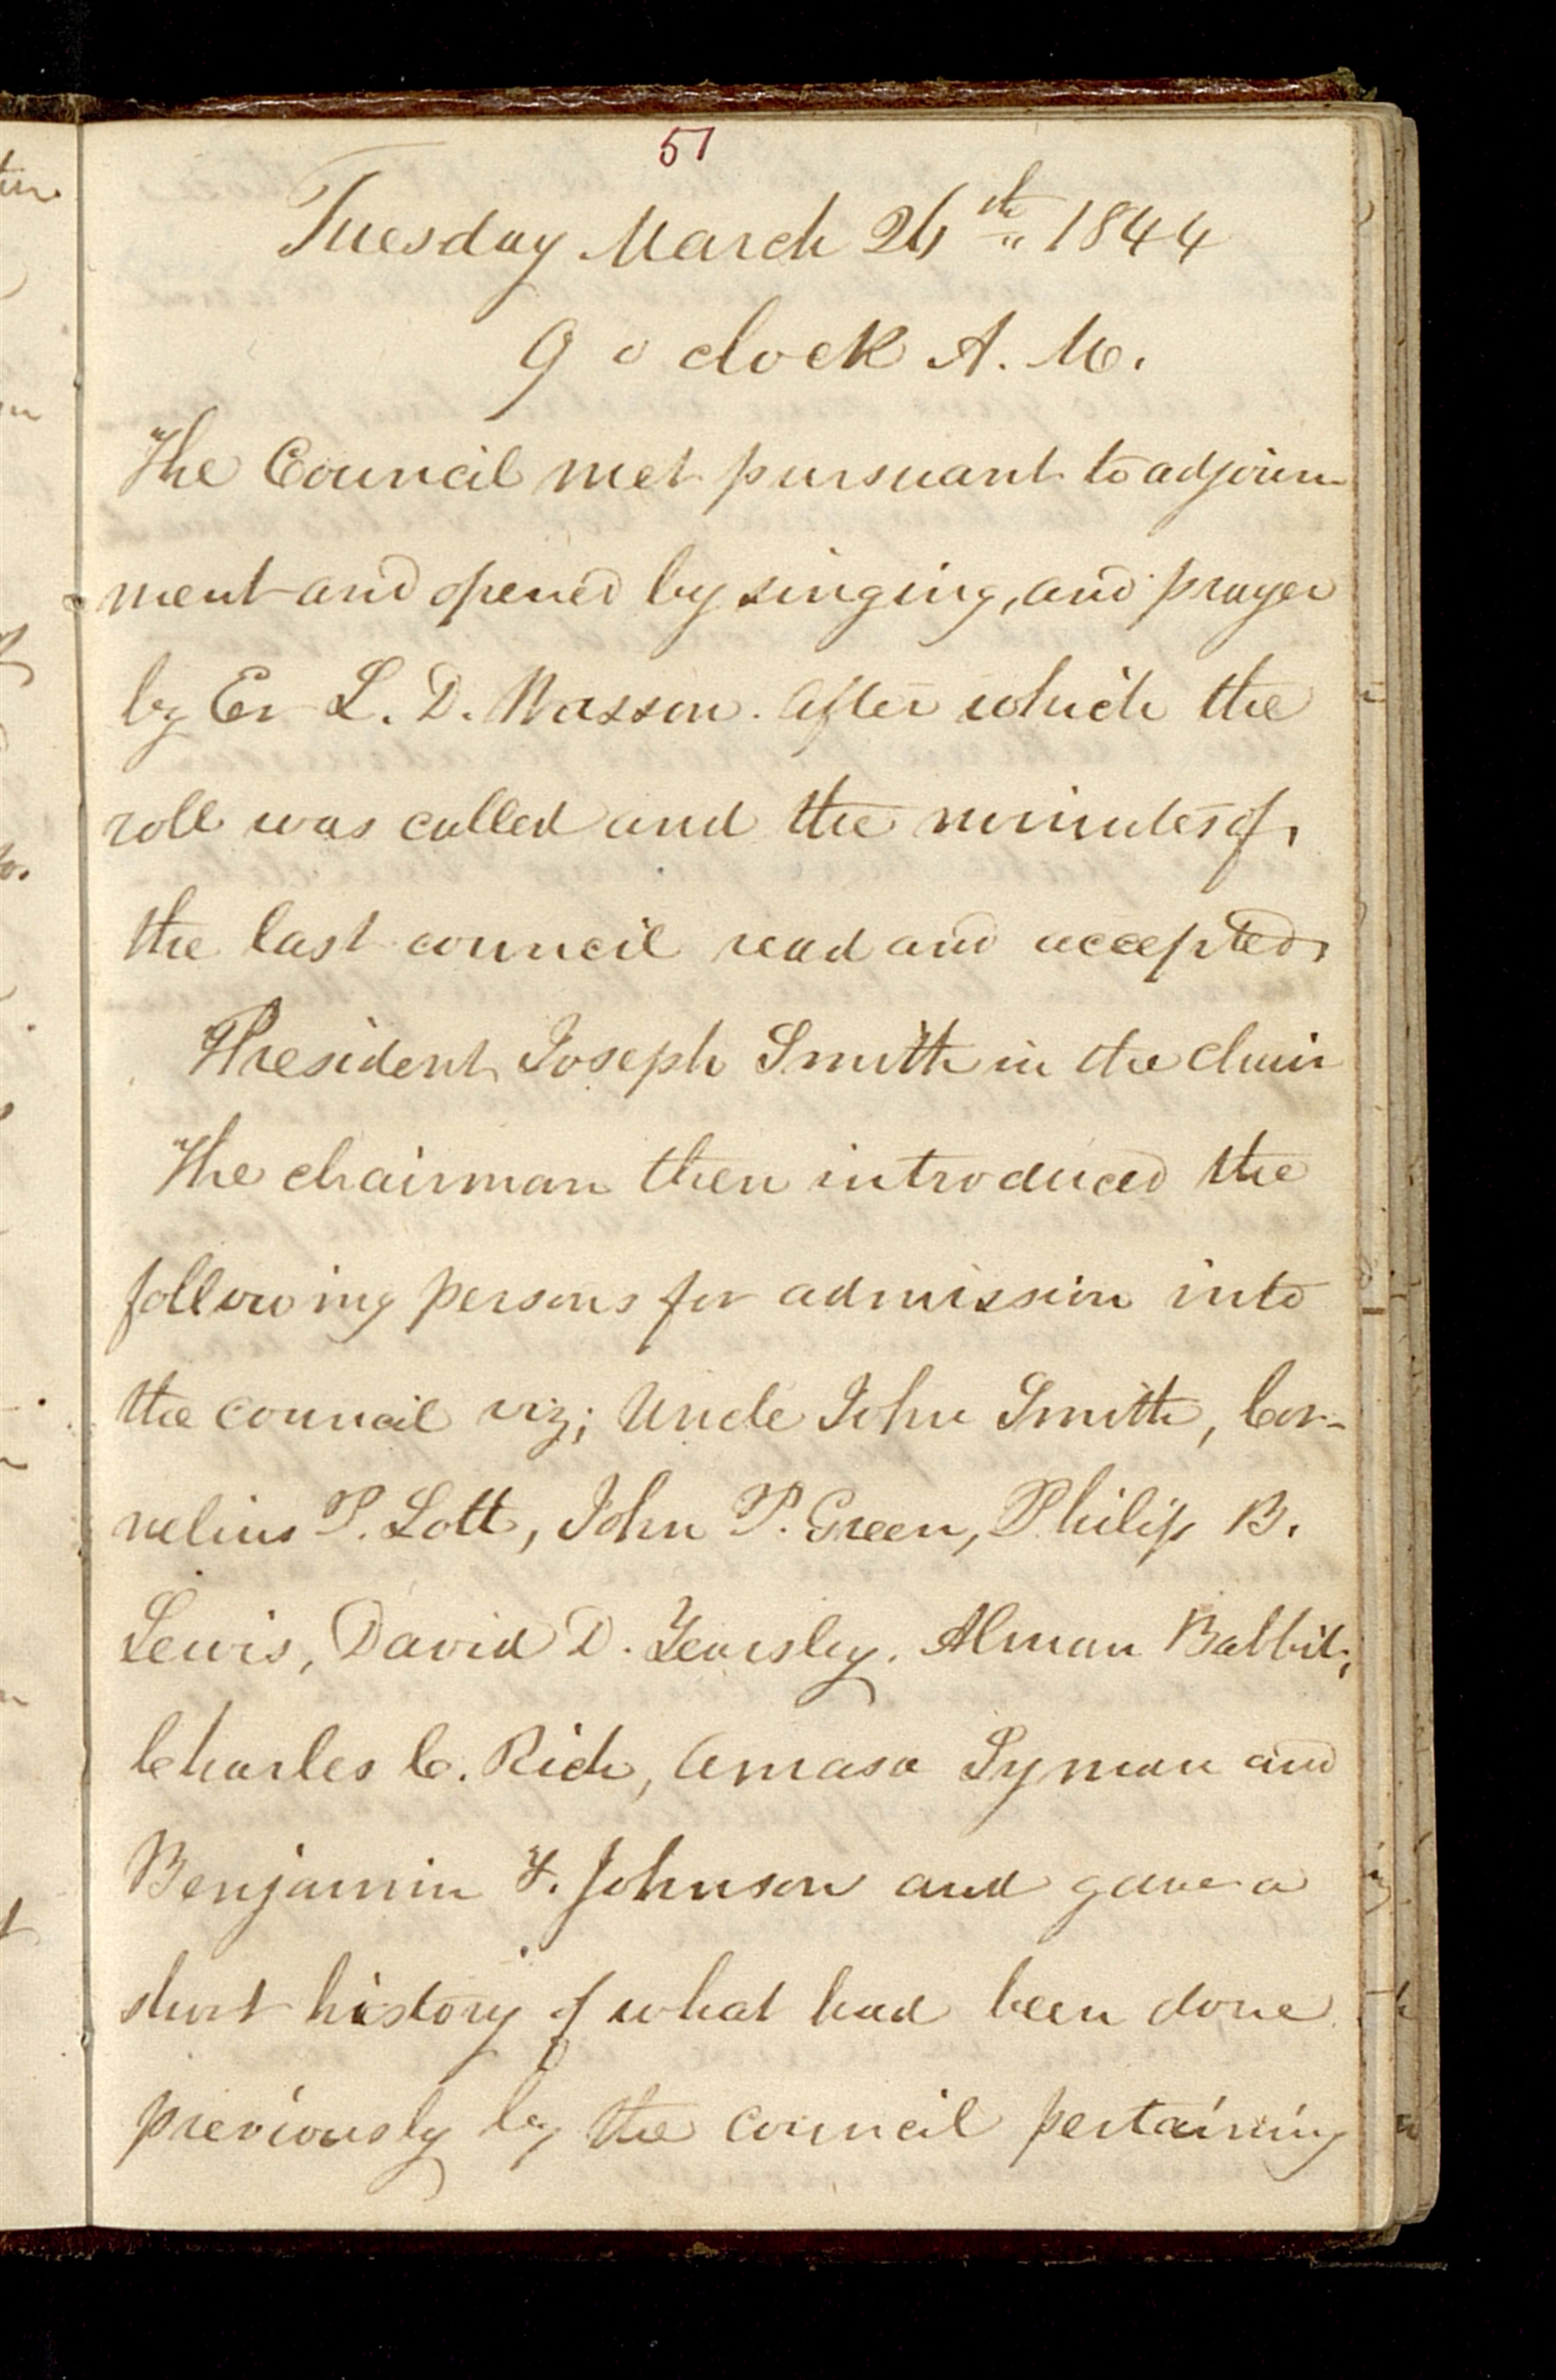 51
Tuesday March 26th 1844
9 o clock A. M.
The Council met pursuant to adjourn
ment and opened by singing, and prayer
by Er L. D. Wasson. After which the
roll was called and the minutes of
the last council read and accepted,
President Joseph Smith in the chair
The chairman then introduced the
following persons for admission into
the council viz; Uncle John Smith, Cor-
nelius P. Lott, John P. Green, Philip B.
Lewis, David D. Yearsley. Almon Babbit;
Charles C. Rich, Amasa Lyman and
Benjamin F. Johnson and gave a
short history of what had been done
previously by the council pertaining